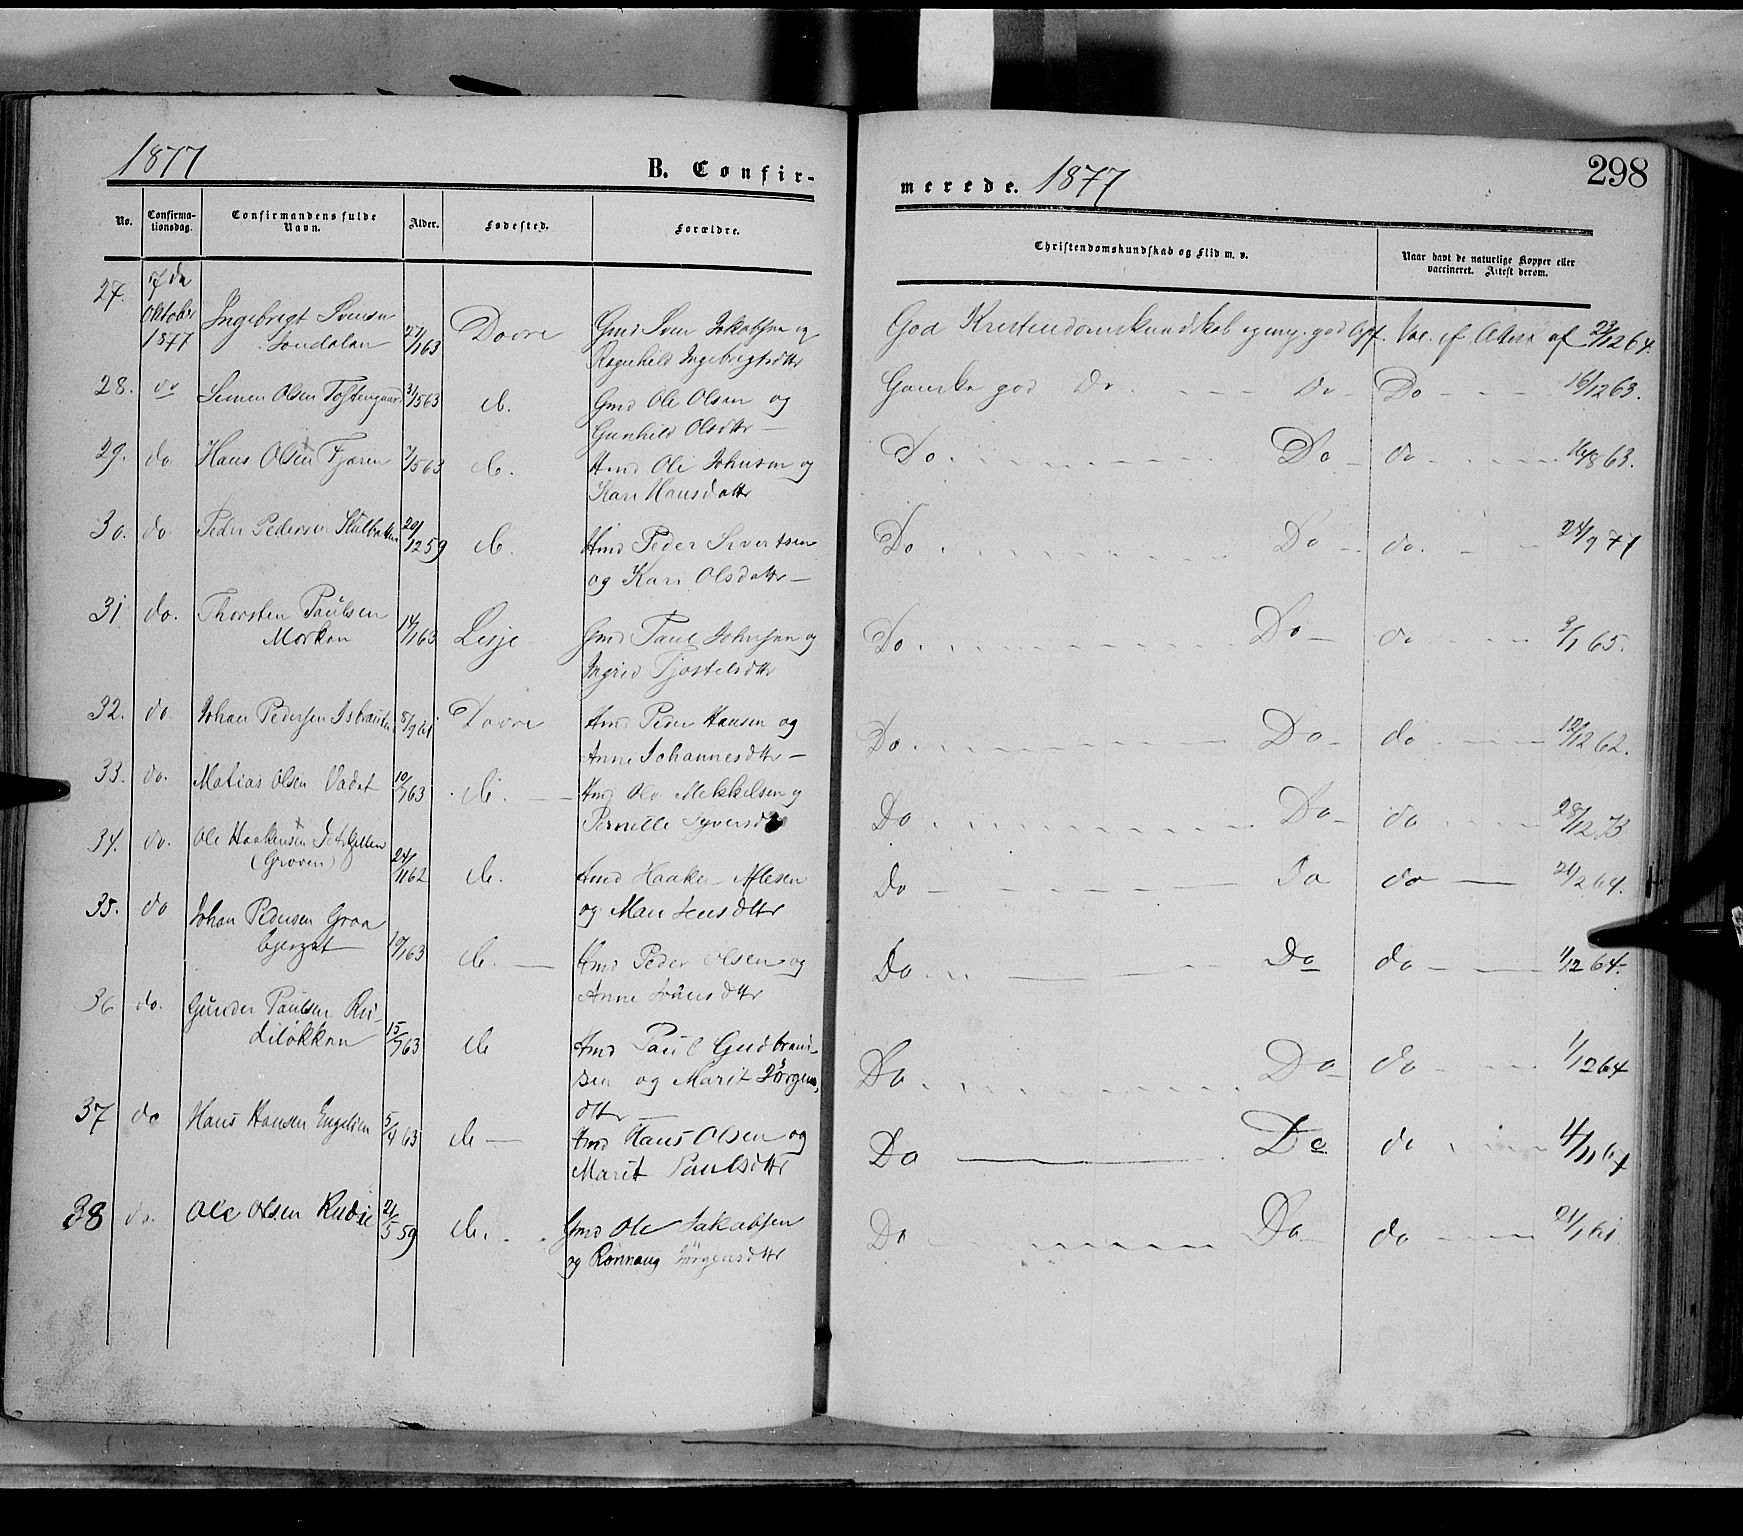 1877
B. Confir-
No.
Confirma-
tionsdag.
Confirmandens fulde
Navn.
Alder.
Fødested.
Forældre.
27.
7de
Oktober
1877
Ingebrigt Svensn
27/1 63
Dovre
Gmd Sven Jakobsen og
Ragnhild Ingebrigtsdttr
28.
do
Simen Olsen Toftengaard
3/5 63
do.
Gmd Ole Olsen og
Gunhild Olsdttr —
29.
do
Hans Olsen Fjæren
do.
Hmd Ole Johnsen og
Kari Hansdattr
30.
do.
Peder Pedersen
29/12 59
do.
Hmd Peder Sivertsen
og Kari Olsdattr —
31
do.
Thorsten Paulsen
Morken
14/1 63
Lesje
Gmd Paul Johnsen og
Ingrid Tjostelsdttr
32.
do.
Johan Pedersen
5/9 61
Dovre
Hmd Peder Hansen og
Anne Johannesdttr —
33.
do.
Matias Olsen Vadet
10/7 63
do. —
Hmd Ole Mekkelsen og
Pernille Syversd
34.
do.
Ole Haakensen
(Groven)
24/11 62
do.
Hmd Haaken
og Mari Jensdttr
35.
do
Johan Pedersen Graa
bjerget
19/1 63
do. —
Hmd Peder Olsen og
Anne Jonsdttr
36
do.
Gunder Paulsen Ru-
diløkken
15/7 63
do
Hmd Paul Gudbrand-
sen og Marit Jørgens-
dttr —
37
do
Hans Hansen Engelien
5/4 63
do —
Hmd Hans Olsen og
Marit Paulsdttr
38
do.
Ole Olsen Rudie
21/5 59
do.
Gmd Ole Jakobsen
og Rønnaug Jørgensdttr
merede. 1877
298
Christendomskundskab og Flid m. v.
Naar havt de naturlige Kopper eller
vaccineret. Attest derom.
God Kristendomskundskab og meg. god Opf. Vac. ef. Attest af 23/12 64.
Ganske god Do - - - Do - Do - - - 16/12 63.
Do - - - Do - do - - - 16/8 63.
Do - - - Do - do. - - 24/9 71
Do - - - Do - do - - - 9/1 65.
Do - - - Do - do - - - 12/12 62.
Do - - - Do - do - - - 28/12 73
Do - - - Do do — 21/2 64.
Do - - - Do do - - 1/12 64.
Do - - - Do - do - - - 1/12 64
Do — Do do - - - 4/11 64
Do - - - Do - do - - - 21/1 61.